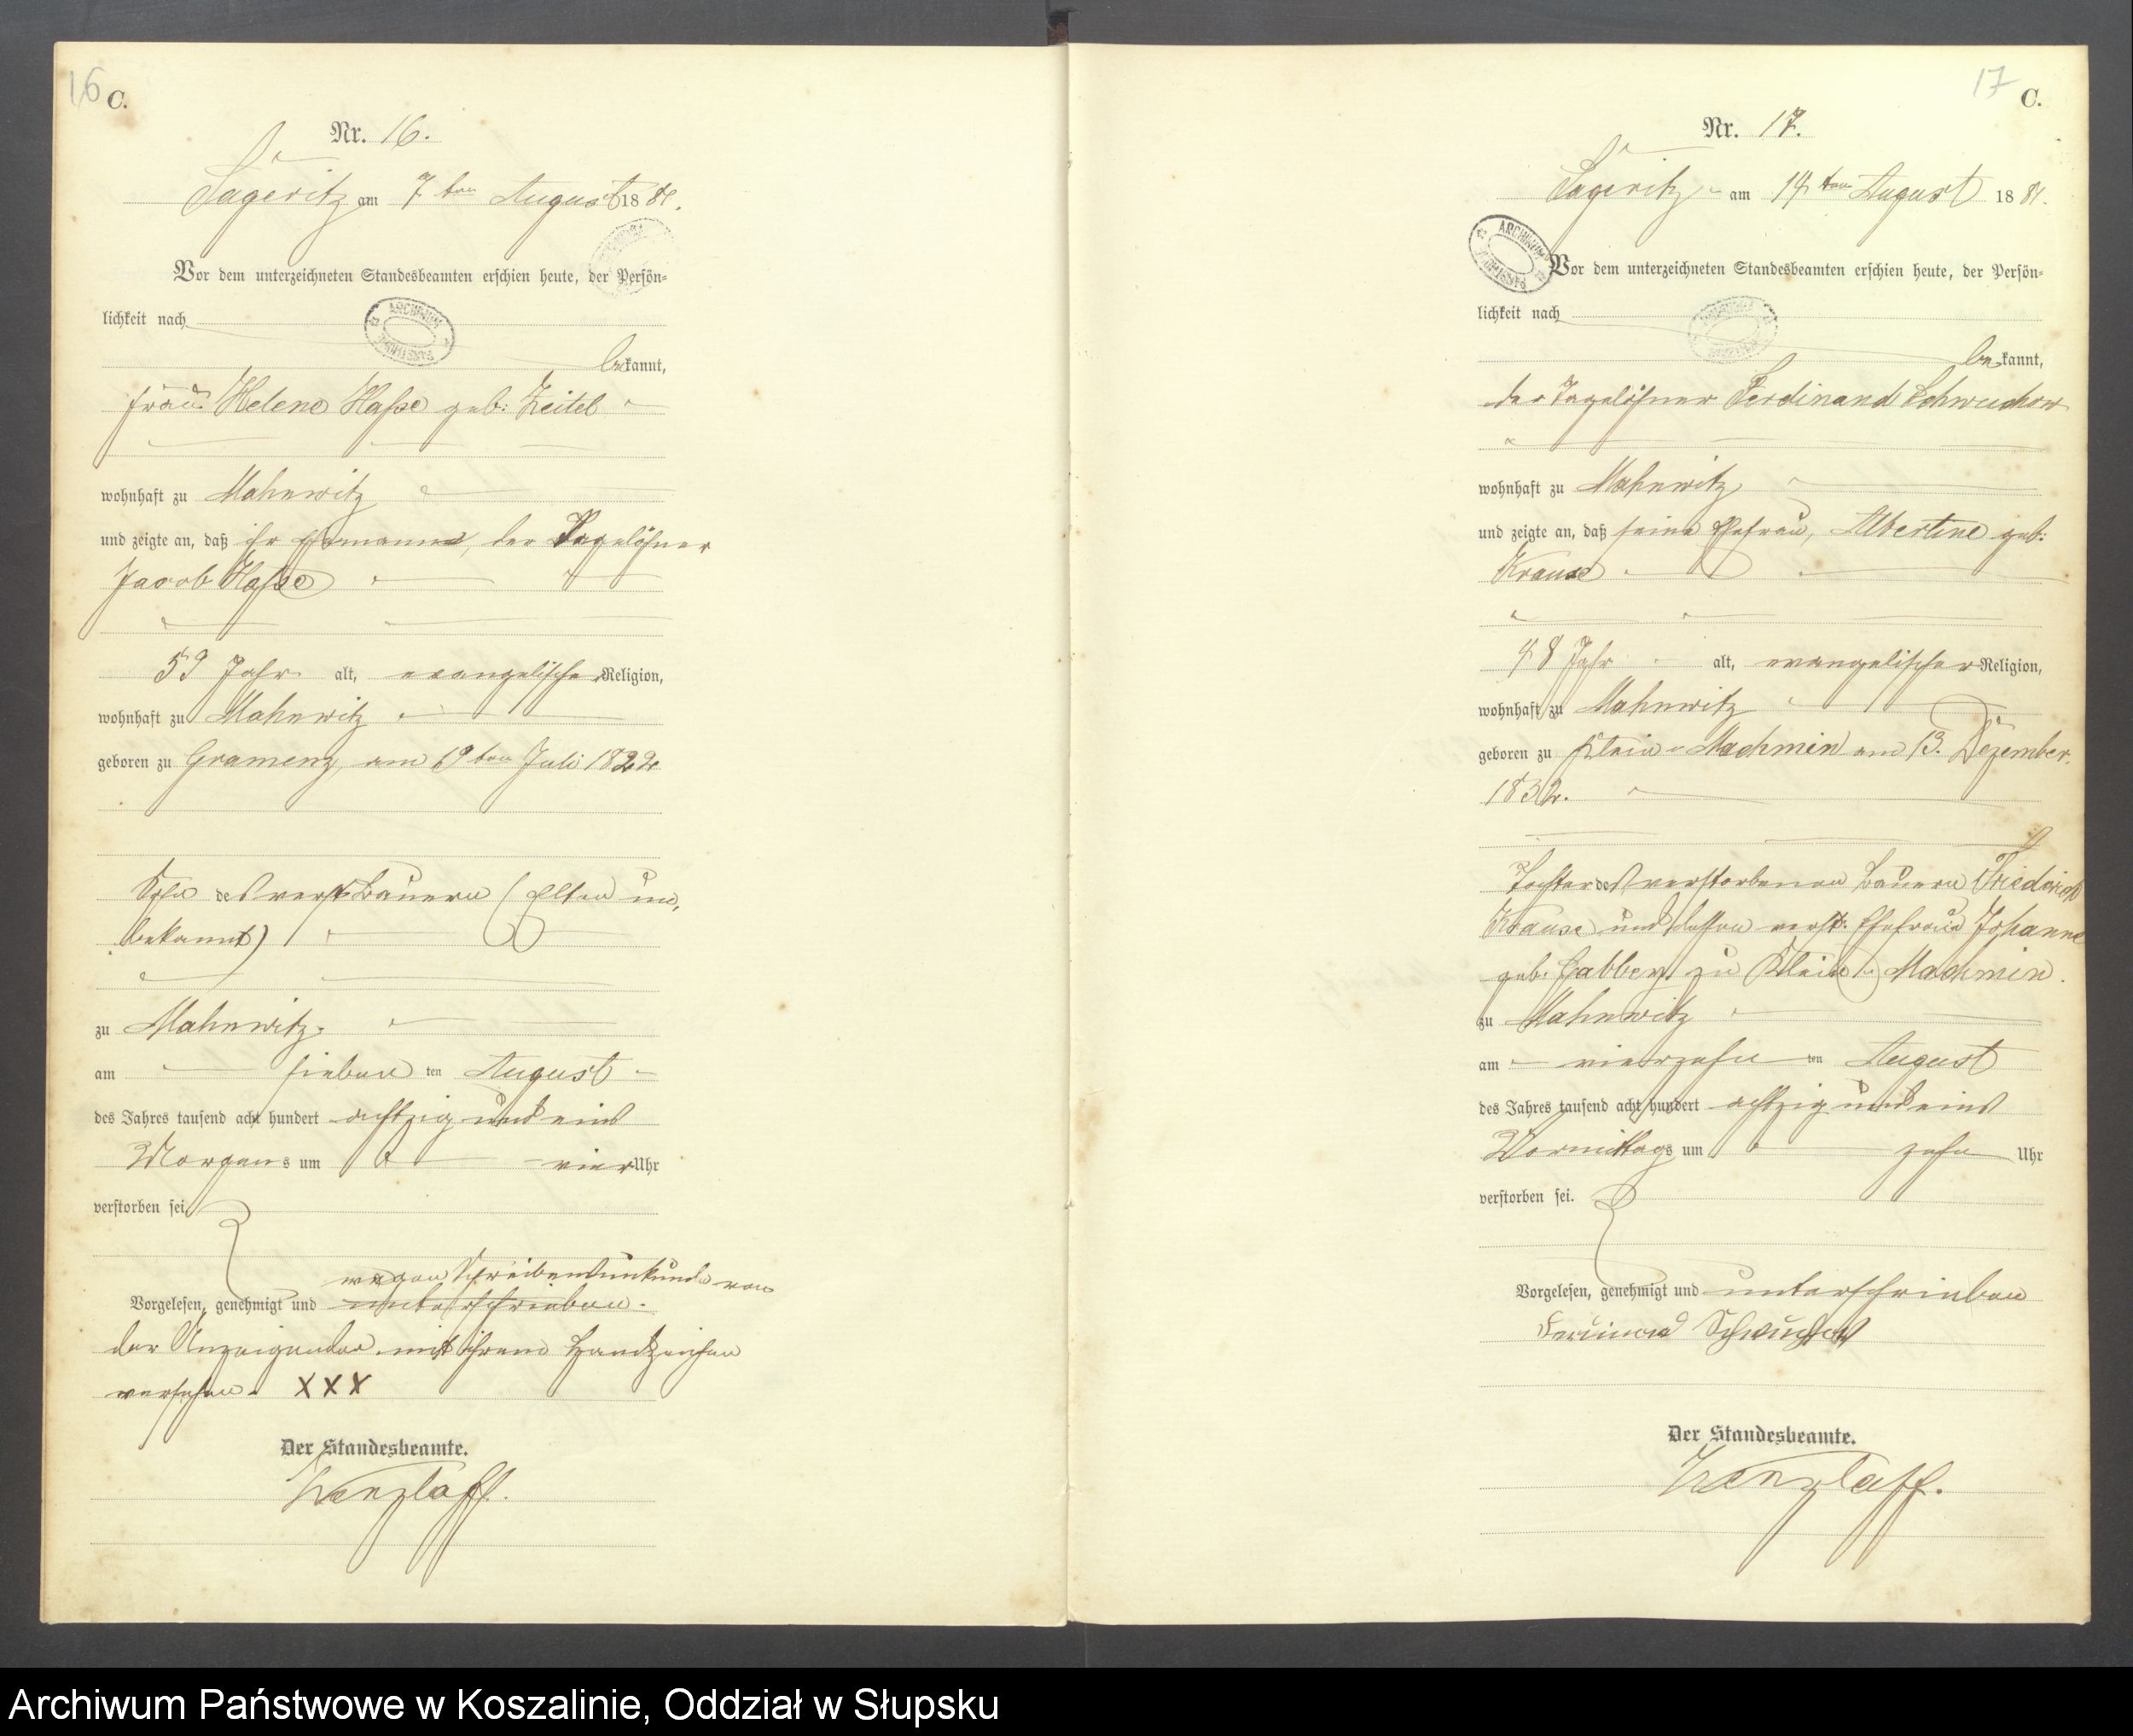 16 C.
Nr. 16.
Sageritz am 7ten August 1881.
Vor dem unterzeichneten Standesbeamten erschien heute, der Persön-
lichkeit nach
bekannt,
Frau Helene Hasse geb: Zeitel
wohnhaft zu Mahnwitz
und zeigte an, daß ihr Ehemann, der Tagelöhner
Jacob Hasse
59 Jahr alt, evangelischer Religion,
wohnhaft zu Mahnwitz
geboren zu Gramenz, am 19ten Juli 1822
Sohn des verst. Bauern (Eltern un-
bekannt)
zu Mahnwitz.
am sieben ten August
des Jahres tausend acht hundert achtzig und eins
Morgens um vier Uhr
verstorben sei.
wegen Schreibensunkunde von
Vorgelesen, genehmigt und unterschrieben.
der Anzeigenden mit ihrem Handzeichen
versehen. XXX
Der Standesbeamte.
ARCHIWUM
17 C.
Nr. 17.
Sageritz am 14ten August 1881.
Vor dem unterzeichneten Standesbeamten erschien heute, der Persön-
lichkeit nach
bekannt,
der Tagelöhner Ferdinand Schwuchow
wohnhaft zu Mahnwitz
und zeigte an, daß seine Ehefrau, Albertine geb:
Krause
48 Jahr alt, evangelischer Religion,
wohnhaft zu Mahnwitz
geboren zu Klein-Machmin am 13. Dezember
1832.
Tochter des verstorbenen Bauern Friederich
Krause und dessen verst. Ehefrau Johanne
geb. Gabbey zu Klein-Machmin.
zu Mahnwitz
am vierzehn ten August
des Jahres tausend acht hundert achtzig und eins
Vormittags um zehn Uhr
verstorben sei.
Vorgelesen, genehmigt und unterschrieben
Ferdinand Schwuchow
Der Standesbeamte.
ARCHIWUM
Archiwum Państwowe w Koszalinie, Oddział w Słupsku